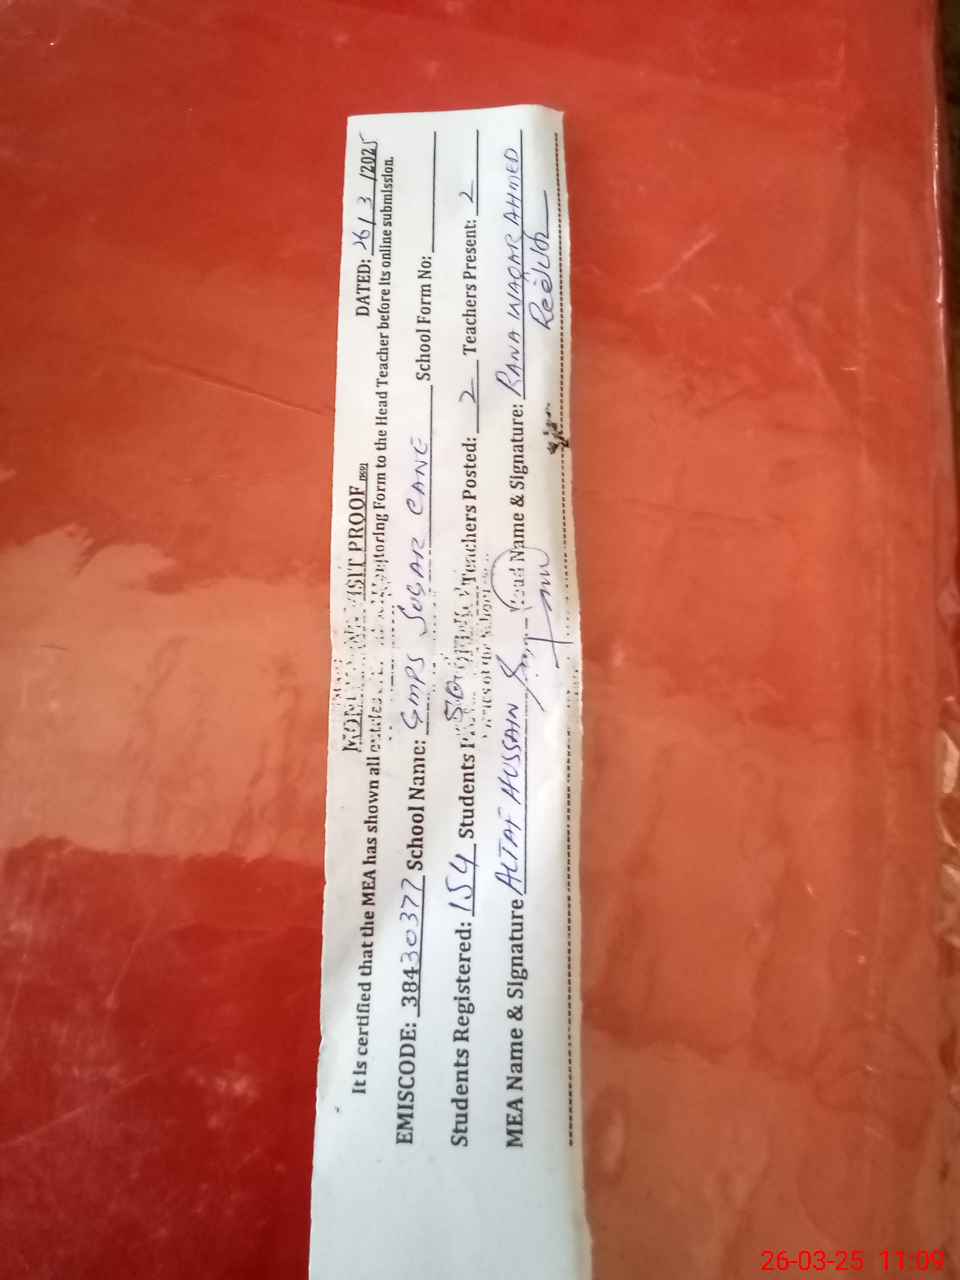 VISIT PROOF
DATED: 26/3/2025
It is certified that the MEA has shown all entries Monitoring Form to the Head Teacher before its online submission.
EMISCODE: 38430377 School Name: GMPS SUGAR CANE School Form No:
Students Registered: 154 Students Teachers Posted: 2 Teachers Present: 2
of the School
MEA Name & Signature ALTAF HUSSAIN Head Name & Signature: RANA WAQAR AHMED
26-03-25 11:09